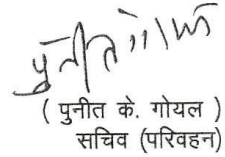 ( पुनीत के. गोयल )
सचिव (परिवहन)